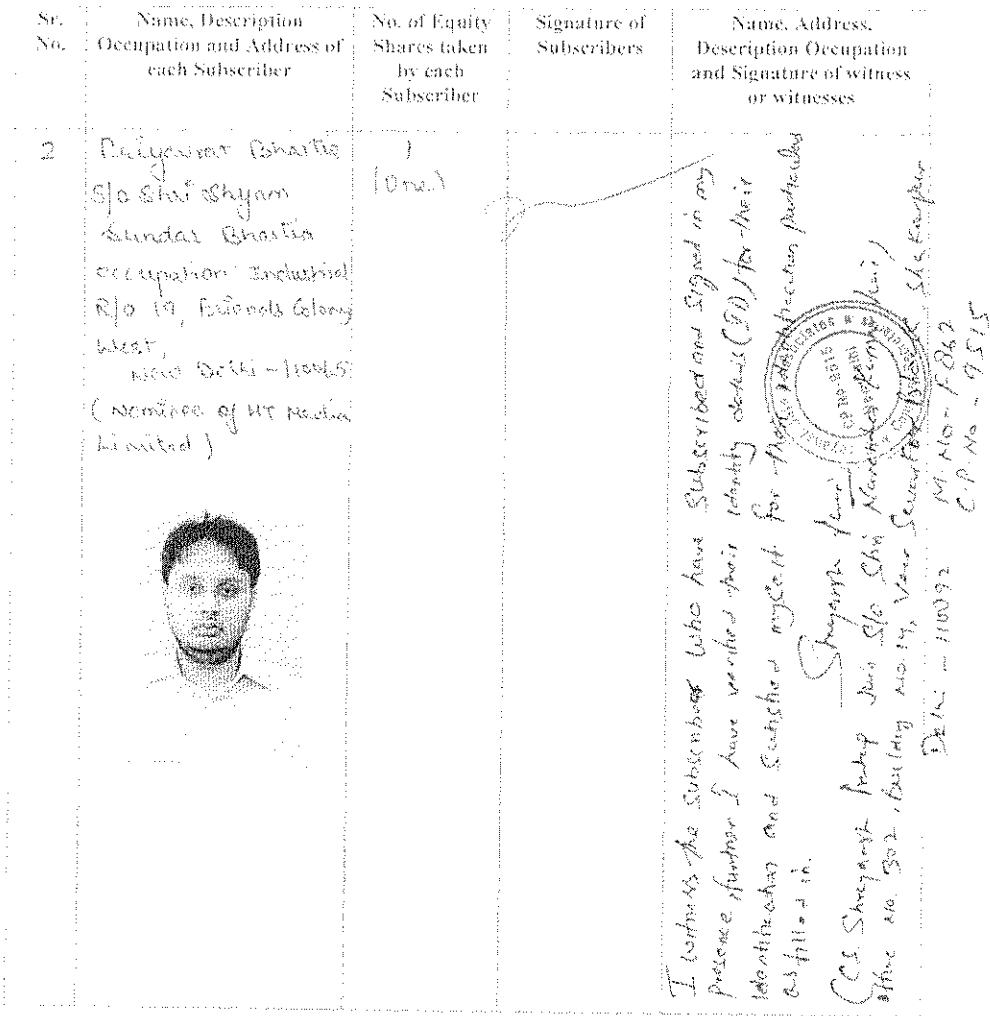 Sr. No.
Name, Description Occupation and Address of each Subscriber
No. of Equity Shares taken by each Subscriber
Signature of Subscribers
Name, Address, Description Occupation and Signature of witness or witnesses
2
Bhartia
S/o Shri Shyam
Sundar Bhartia
occupation Industrial
R/o 19, Friends Colony
West,
New Delhi - 110065
(Nominee of HT Media
Limited)
1
(One)
I witness the subscriber who have subscribed and signed in my
presence, further I have verified their identity details (ID) for their
identification and satisfied myself for their identification particulars
as filled in.
(CS. Pratap Jain S/o Shri Narendra Jain)
Office No. 302, Building No. 19, Veer Savarkar Block, Shakarpur
Delhi - 110092
M. No - F
C.P. No - 9515